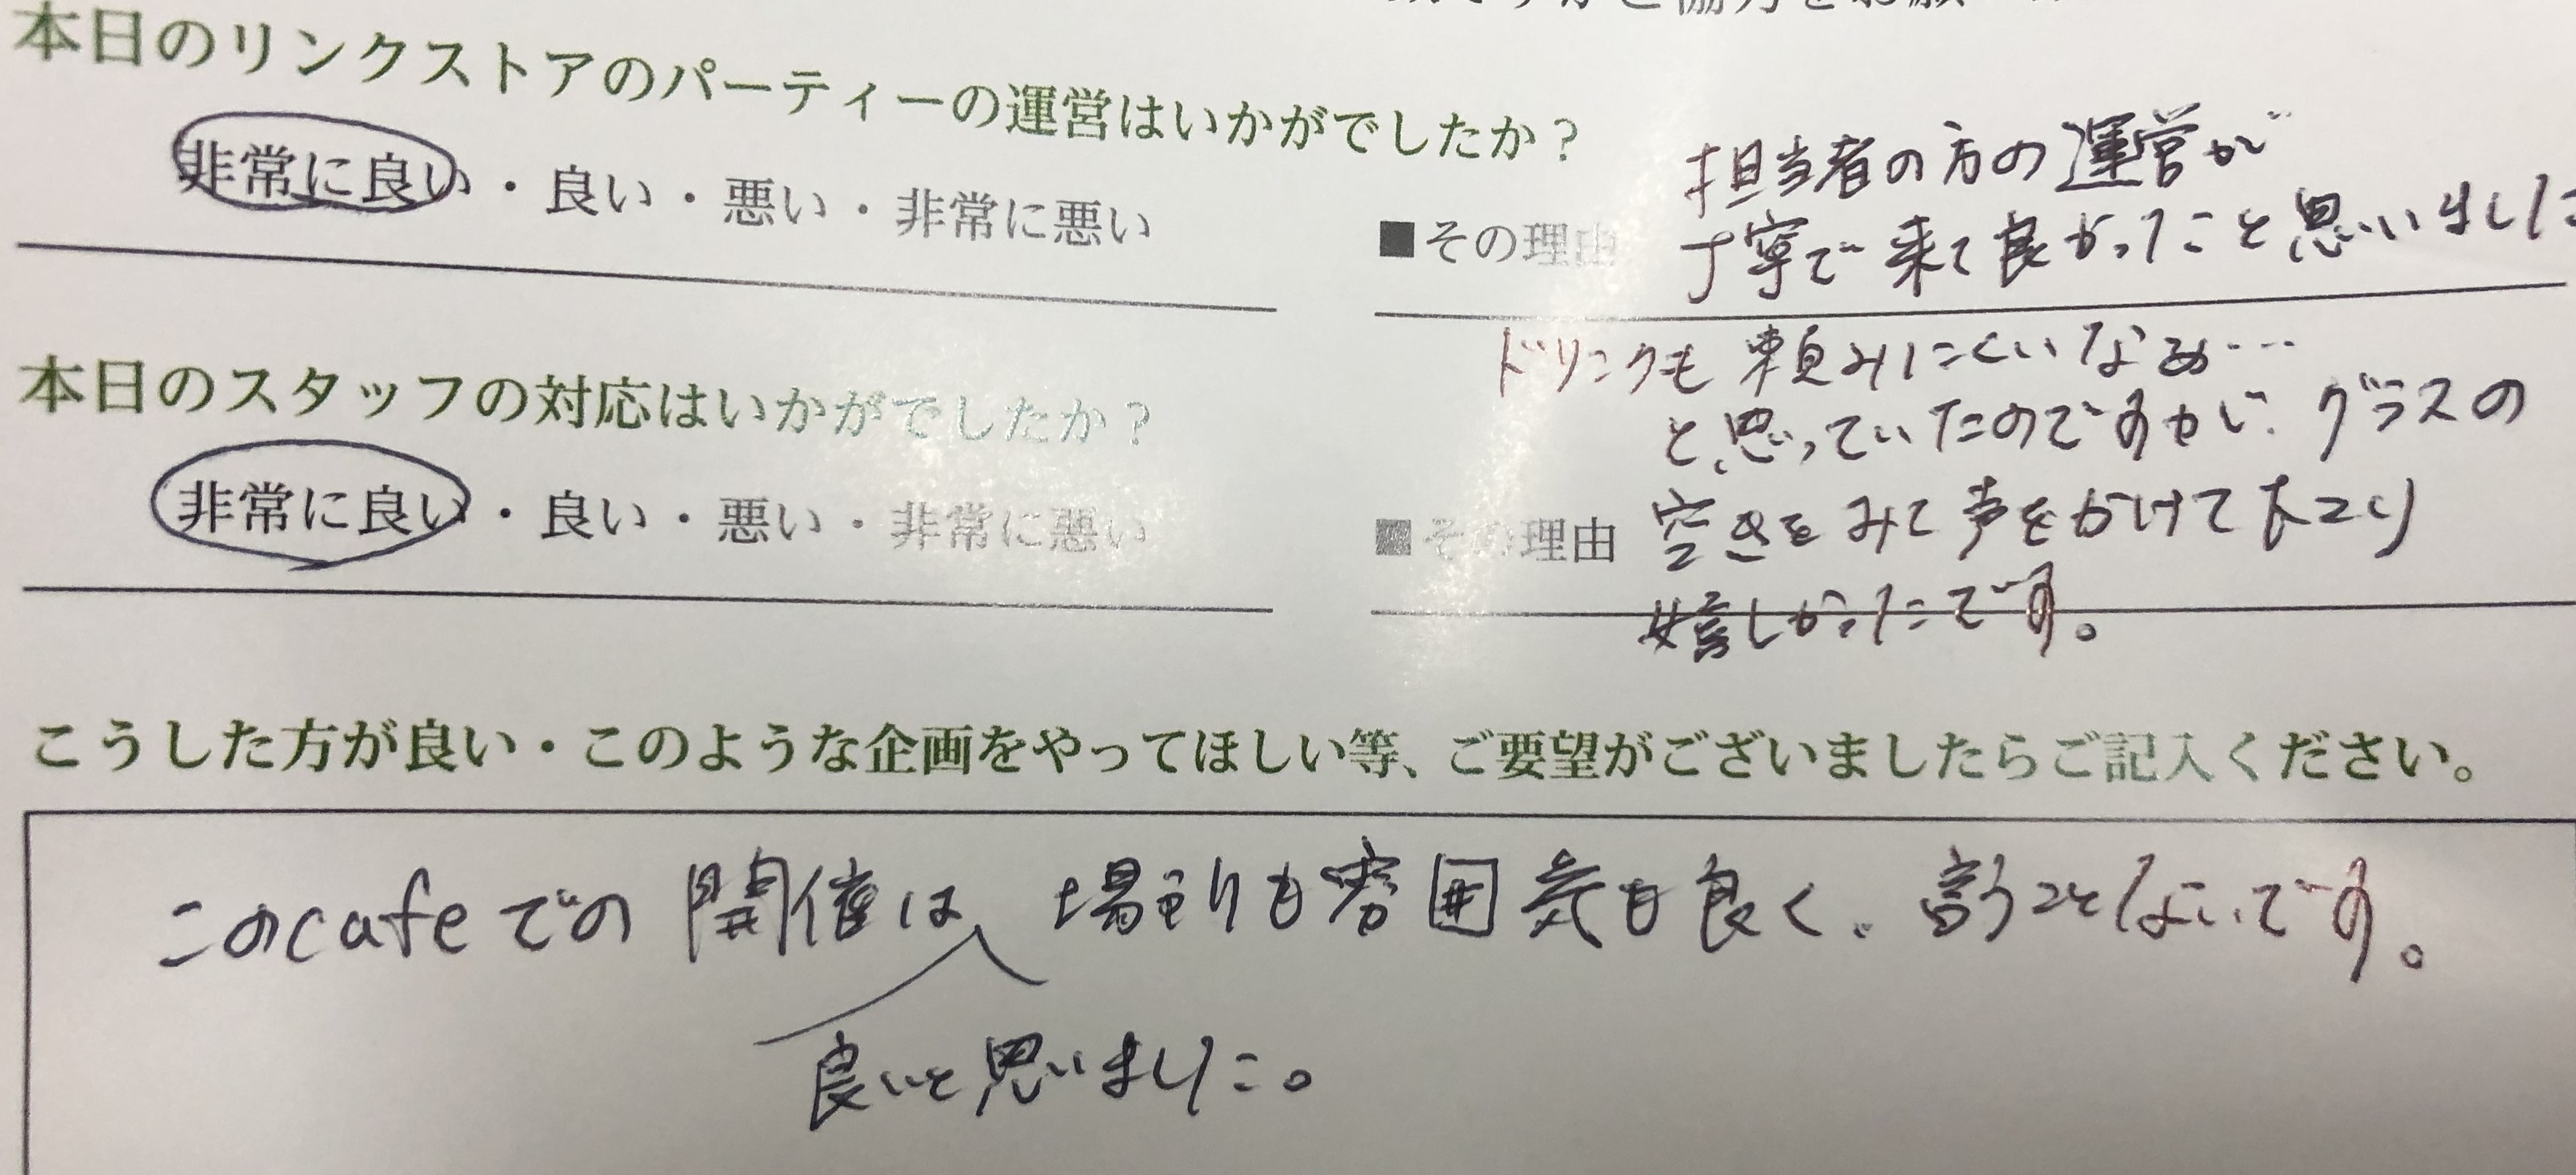 本日のリンクストアのパーティーの運営はいかがでしたか？
非常に良い・良い・悪い・非常に悪い
■その理由
担当者の方の運営が
丁寧で来て良かったと思いました
本日のスタッフの対応はいかがでしたか？
非常に良い・良い・悪い・非常に悪い
■その理由
ドリンクも頼みにくいなぁ…
と思っていたのですが、グラスの
空きをみて声をかけて下さり
嬉しかったです。
こうした方が良い・このような企画をやってほしい等、ご要望がございましたらご記入ください。
このcafeでの開催は 場所も雰囲気も良く、言うことないです。
良いと思いました。